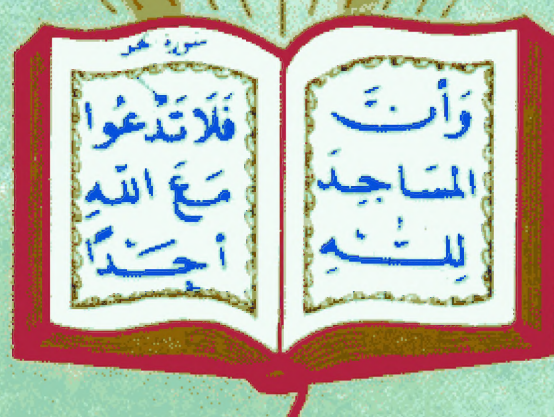 وَأَنَّ
المَسَاجِدَ
لِلَّهِ
سورة
فَلَا تَدْعُوا
مَعَ اللهِ
أحَدًا